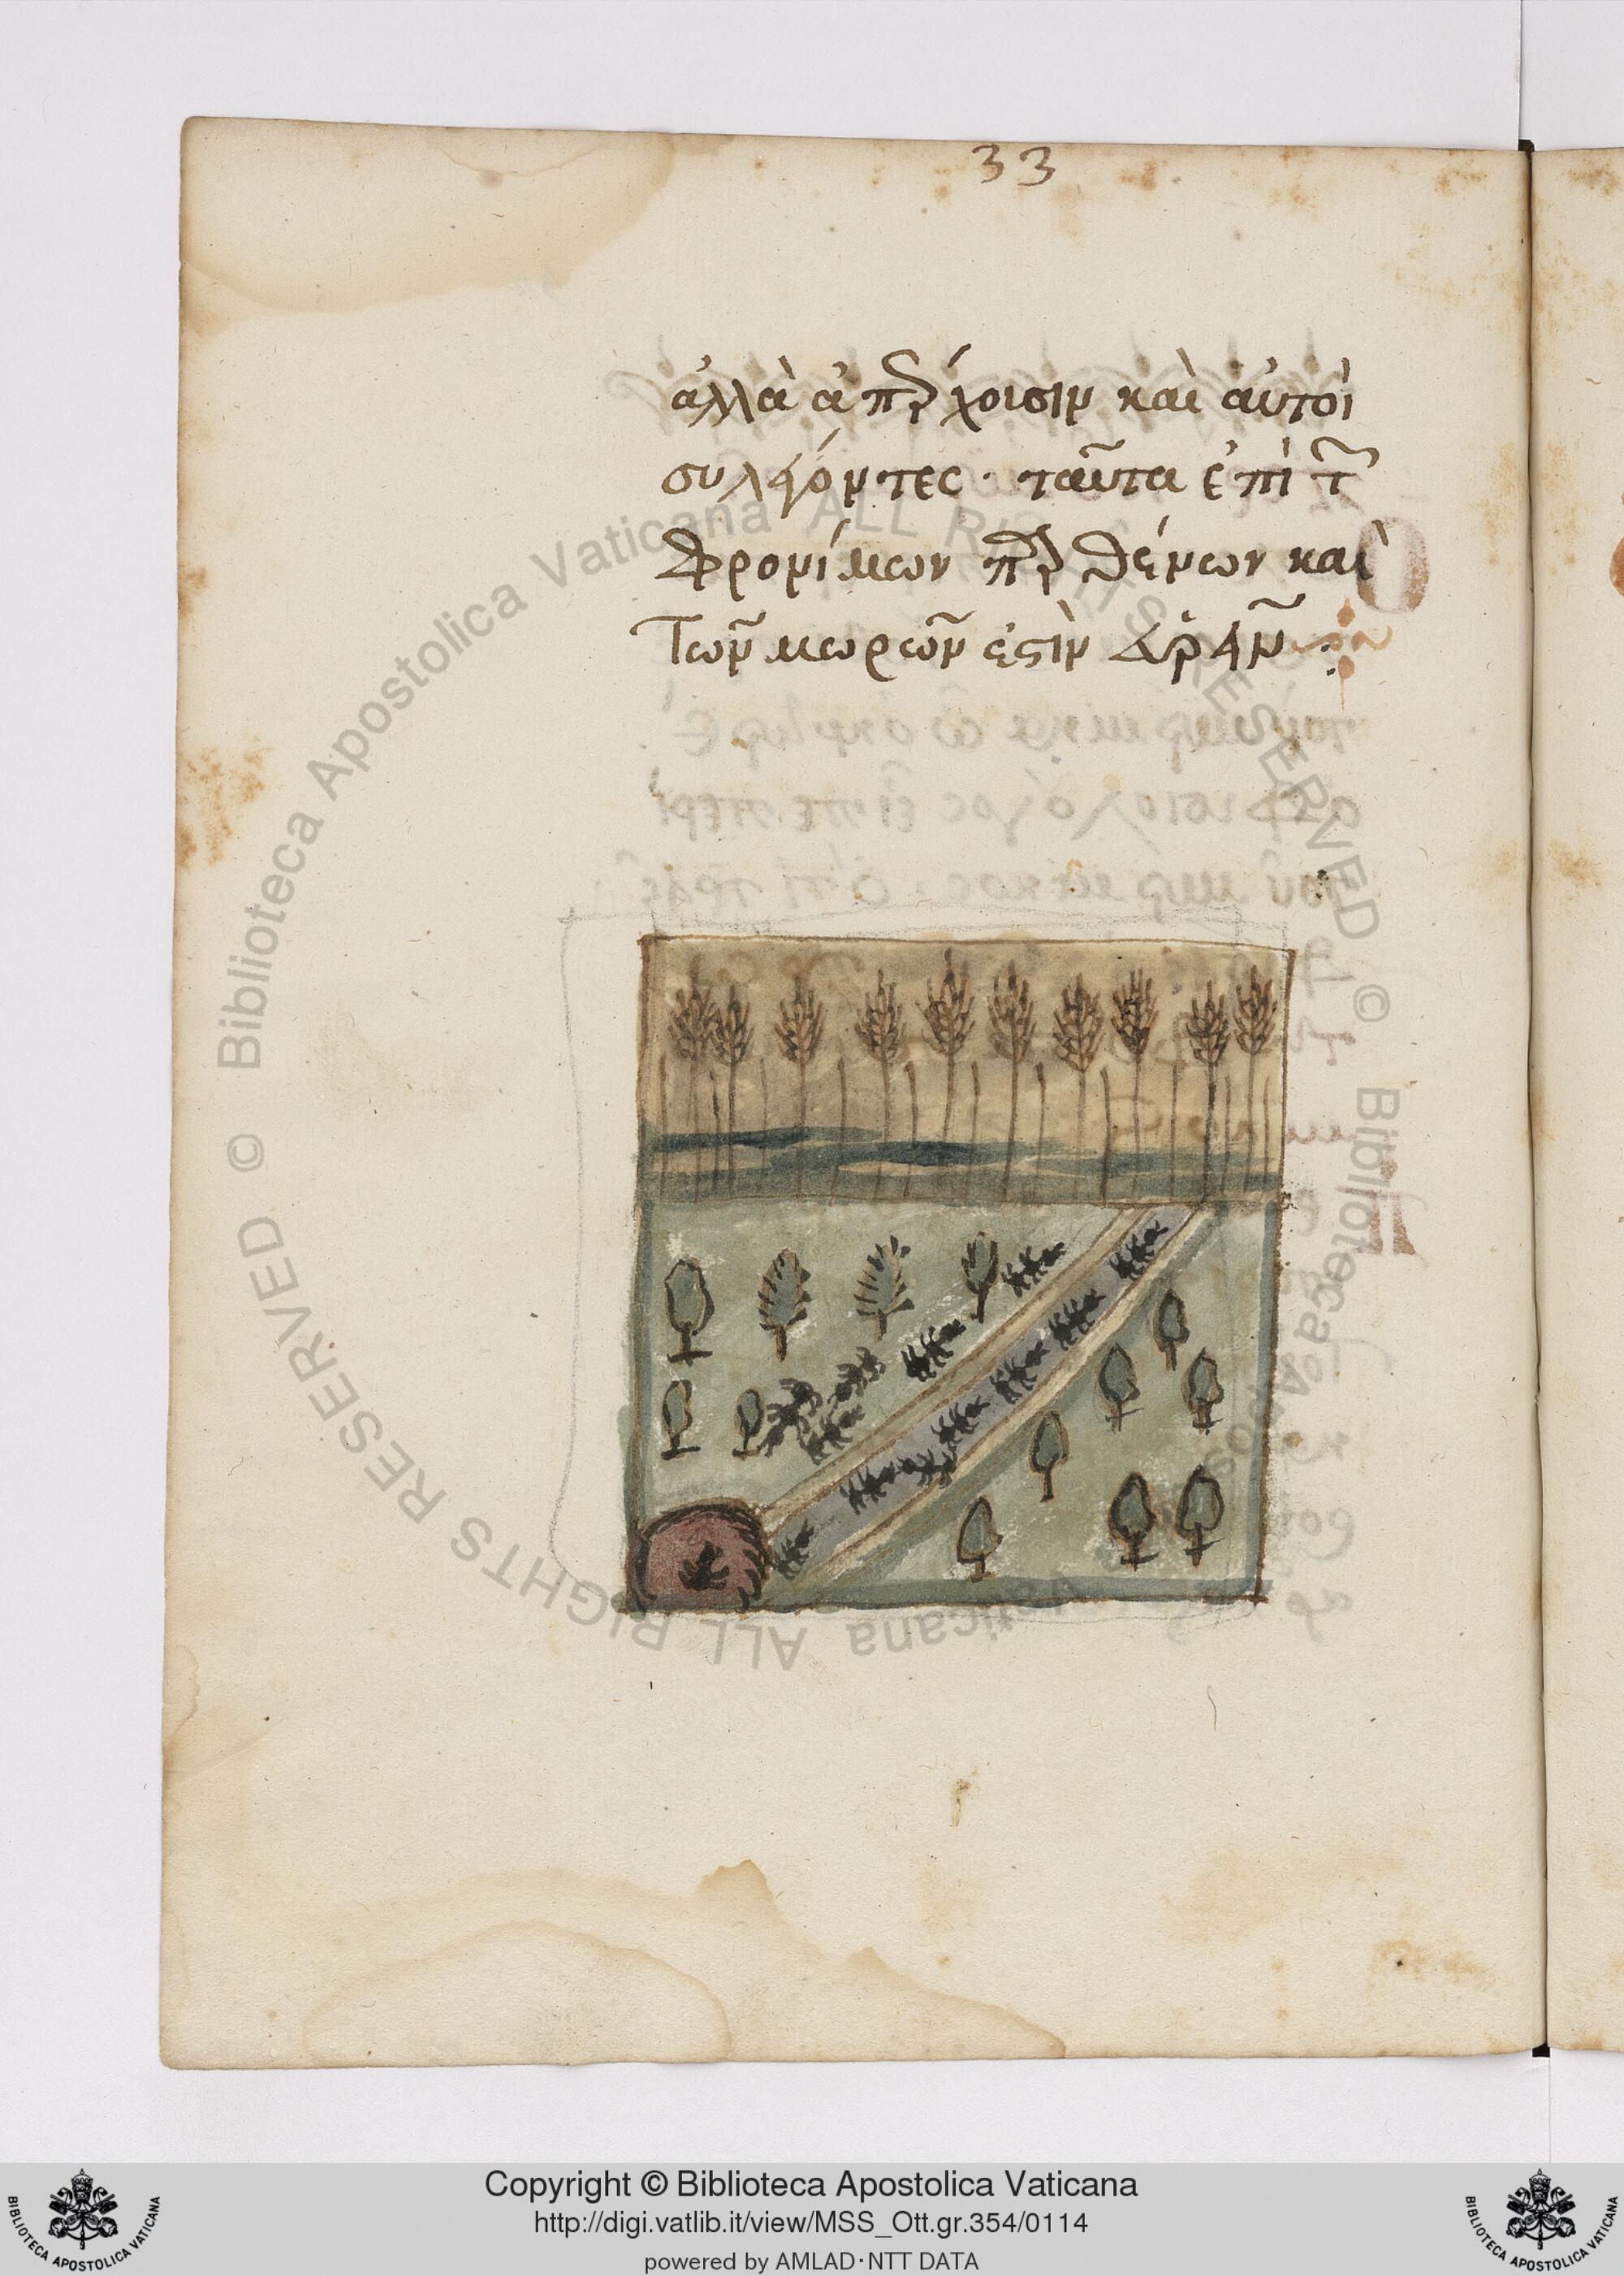 33
ἀλλὰ ἀπέρχοισιν καὶ αὐτοὶ
συλλέγοντες· ταῦτα ἐπὶ τ
φρονίμων παρθένων καὶ
Τῶν μωρῶν ἐστὶν
Copyright © Biblioteca Apostolica Vaticana
http://digi.vatlib.it/view/MSS_Ott.gr.354/0114
powered by AMLAD·NTT DATA
BIBLIOTECA APOSTOLICA VATICANA
BIBLIOTECA APOSTOLICA VATICANA
© Biblioteca Apostolica Vaticana ALL RIGHTS RESERVED
© Biblioteca Apostolica Vaticana ALL RIGHTS RESERVED